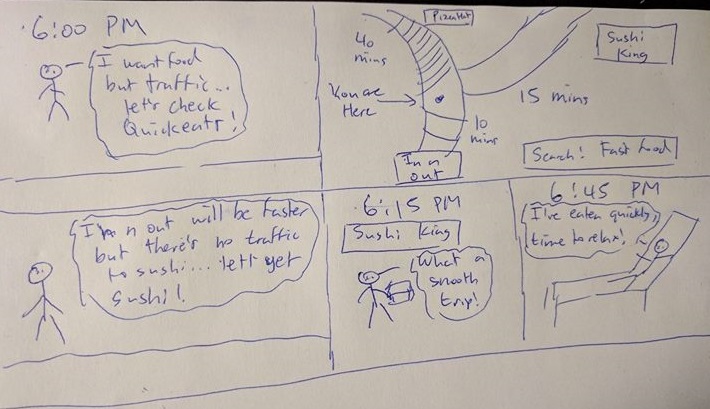 6:00 PM
I want food
but traffic...
let's check
Quickeats!
Pizza Hut
40
mins
You are
Here
Sushi
King
15 mins
10
mins
In n
out
Search: Fast food
In n out will be faster
but there's no traffic
to sushi... let's get
sushi!
6:15 PM
Sushi King
What a
smooth
trip!
6:45 PM
I've eaten quickly,
time to relax!